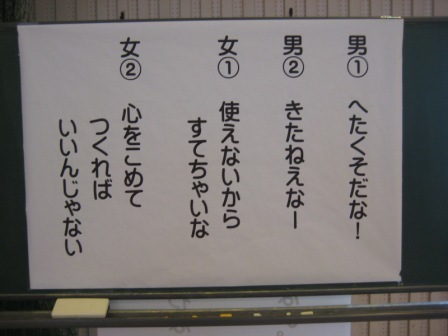 男① へたくそだな!
男② きたねえなー
女① 使えないから
すてちゃいな
女② 心をこめて
つくれば
いいんじゃない